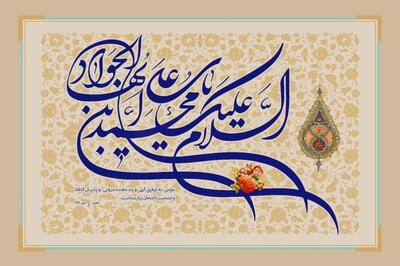 السَّلام علیک یا محمد بن علی اَیُّها الجواد
مؤمن، به توفیق الهی و پند دهنده درونی، و پذیرش انتقاد
و نصیحت ناصحان نیازمند است.